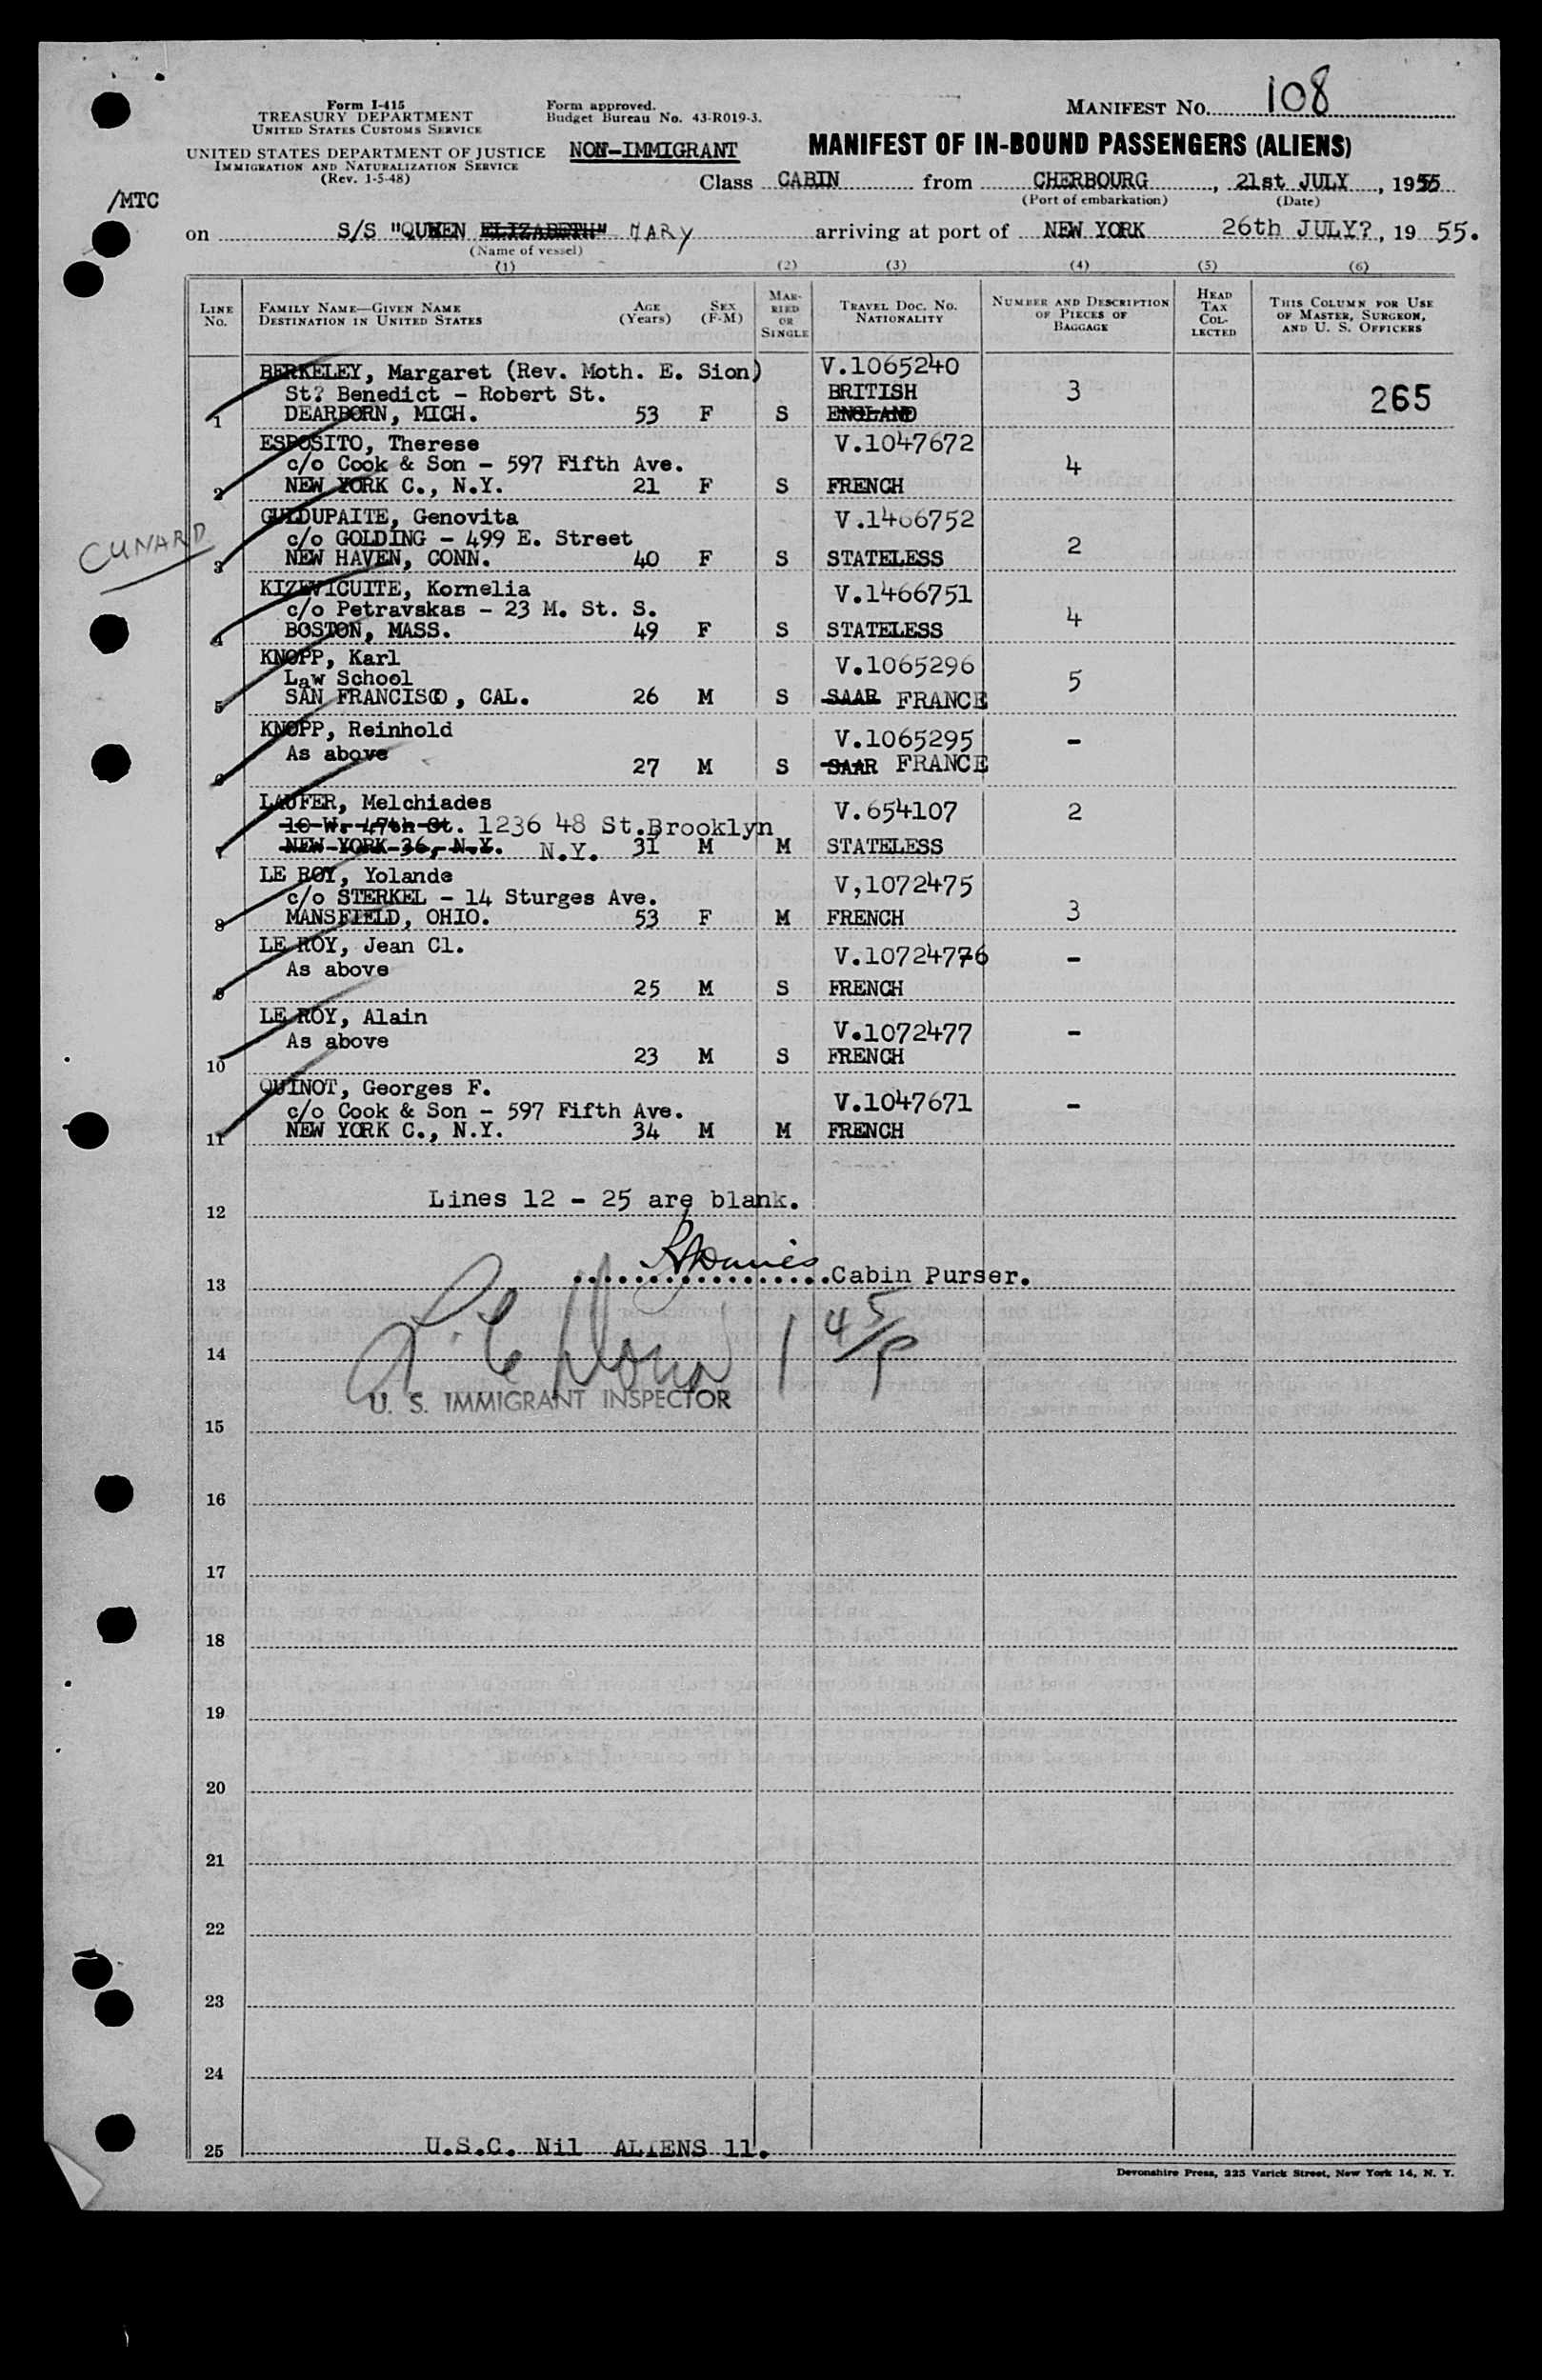 108
Form I-415
TREASURY DEPARTMENT
UNITED STATES CUSTOMS SERVICE
Form approved.
Budget Bureau No. 43-R019-3.
MANIFEST No.
UNITED STATES DEPARTMENT OF JUSTICE
IMMIGRATION AND NATURALIZATION SERVICE
(Rev. 1-5-48)
NON-IMMIGRANT
MANIFEST OF IN-BOUND PASSENGERS (ALIENS)
/MTC
Class CABIN from CHERBOURG, 21st JULY, 1955
(Port of embarkation) (Date)
on S/S "QUEEN ELIZABETH" MARY arriving at port of NEW YORK 26th JULY?, 19 55.
(Name of vessel)
(1) (2) (3) (4) (5) (6)
LINE No.
FAMILY NAME—GIVEN NAME
DESTINATION IN UNITED STATES
AGE (Years)
SEX (F-M)
MARRIED OR SINGLE
TRAVEL DOC. NO.
NATIONALITY
NUMBER AND DESCRIPTION OF PIECES OF BAGGAGE
HEAD TAX COLLECTED
THIS COLUMN FOR USE OF MASTER, SURGEON, AND U. S. OFFICERS
BERKELEY, Margaret (Rev. Moth. E. Sion) V.1065240
St? Benedict - Robert St. BRITISH 3 265
1 DEARBORN, MICH. 53 F S ENGLAND
ESPOSITO, Therese V.1047672
c/o Cook & Son - 597 Fifth Ave. 4
2 NEW YORK C., N.Y. 21 F S FRENCH
CUNARD
GULDUPAITE, Genovita V.1466752
c/o GOLDING - 499 E. Street 2
3 NEW HAVEN, CONN. 40 F S STATELESS
KIZEVICUITE, Kornelia V.1466751
c/o Petravskas - 23 M. St. S. 4
4 BOSTON, MASS. 49 F S STATELESS
KNOPP, Karl V.1065296
Law School 5
5 SAN FRANCISCO, CAL. 26 M S SAAR FRANCE
KNOPP, Reinhold V.1065295 -
As above
6 27 M S SAAR FRANCE
LAUFER, Melchiades V.654107 2
10 W. 47th St. 1236 48 St.Brooklyn
7 NEW YORK 36, N.Y. N.Y. 31 M M STATELESS
LE ROY, Yolande V,1072475
c/o STERKEL - 14 Sturges Ave. 3
8 MANSFIELD, OHIO. 53 F M FRENCH
LE ROY, Jean Cl. V.10724776 -
As above
9 25 M S FRENCH
LE ROY, Alain V.1072477 -
As above
10 23 M S FRENCH
QUINOT, Georges F. V.1047671 -
c/o Cook & Son - 597 Fifth Ave.
11 NEW YORK C., N.Y. 34 M M FRENCH
Lines 12 - 25 are blank.
12
13 Cabin Purser.
14
U. S. IMMIGRANT INSPECTOR
15
16
17
18
19
20
21
22
23
24
25 U.S.C. Nil ALIENS 11.
Devonshire Press, 225 Varick Street, New York 14, N. Y.